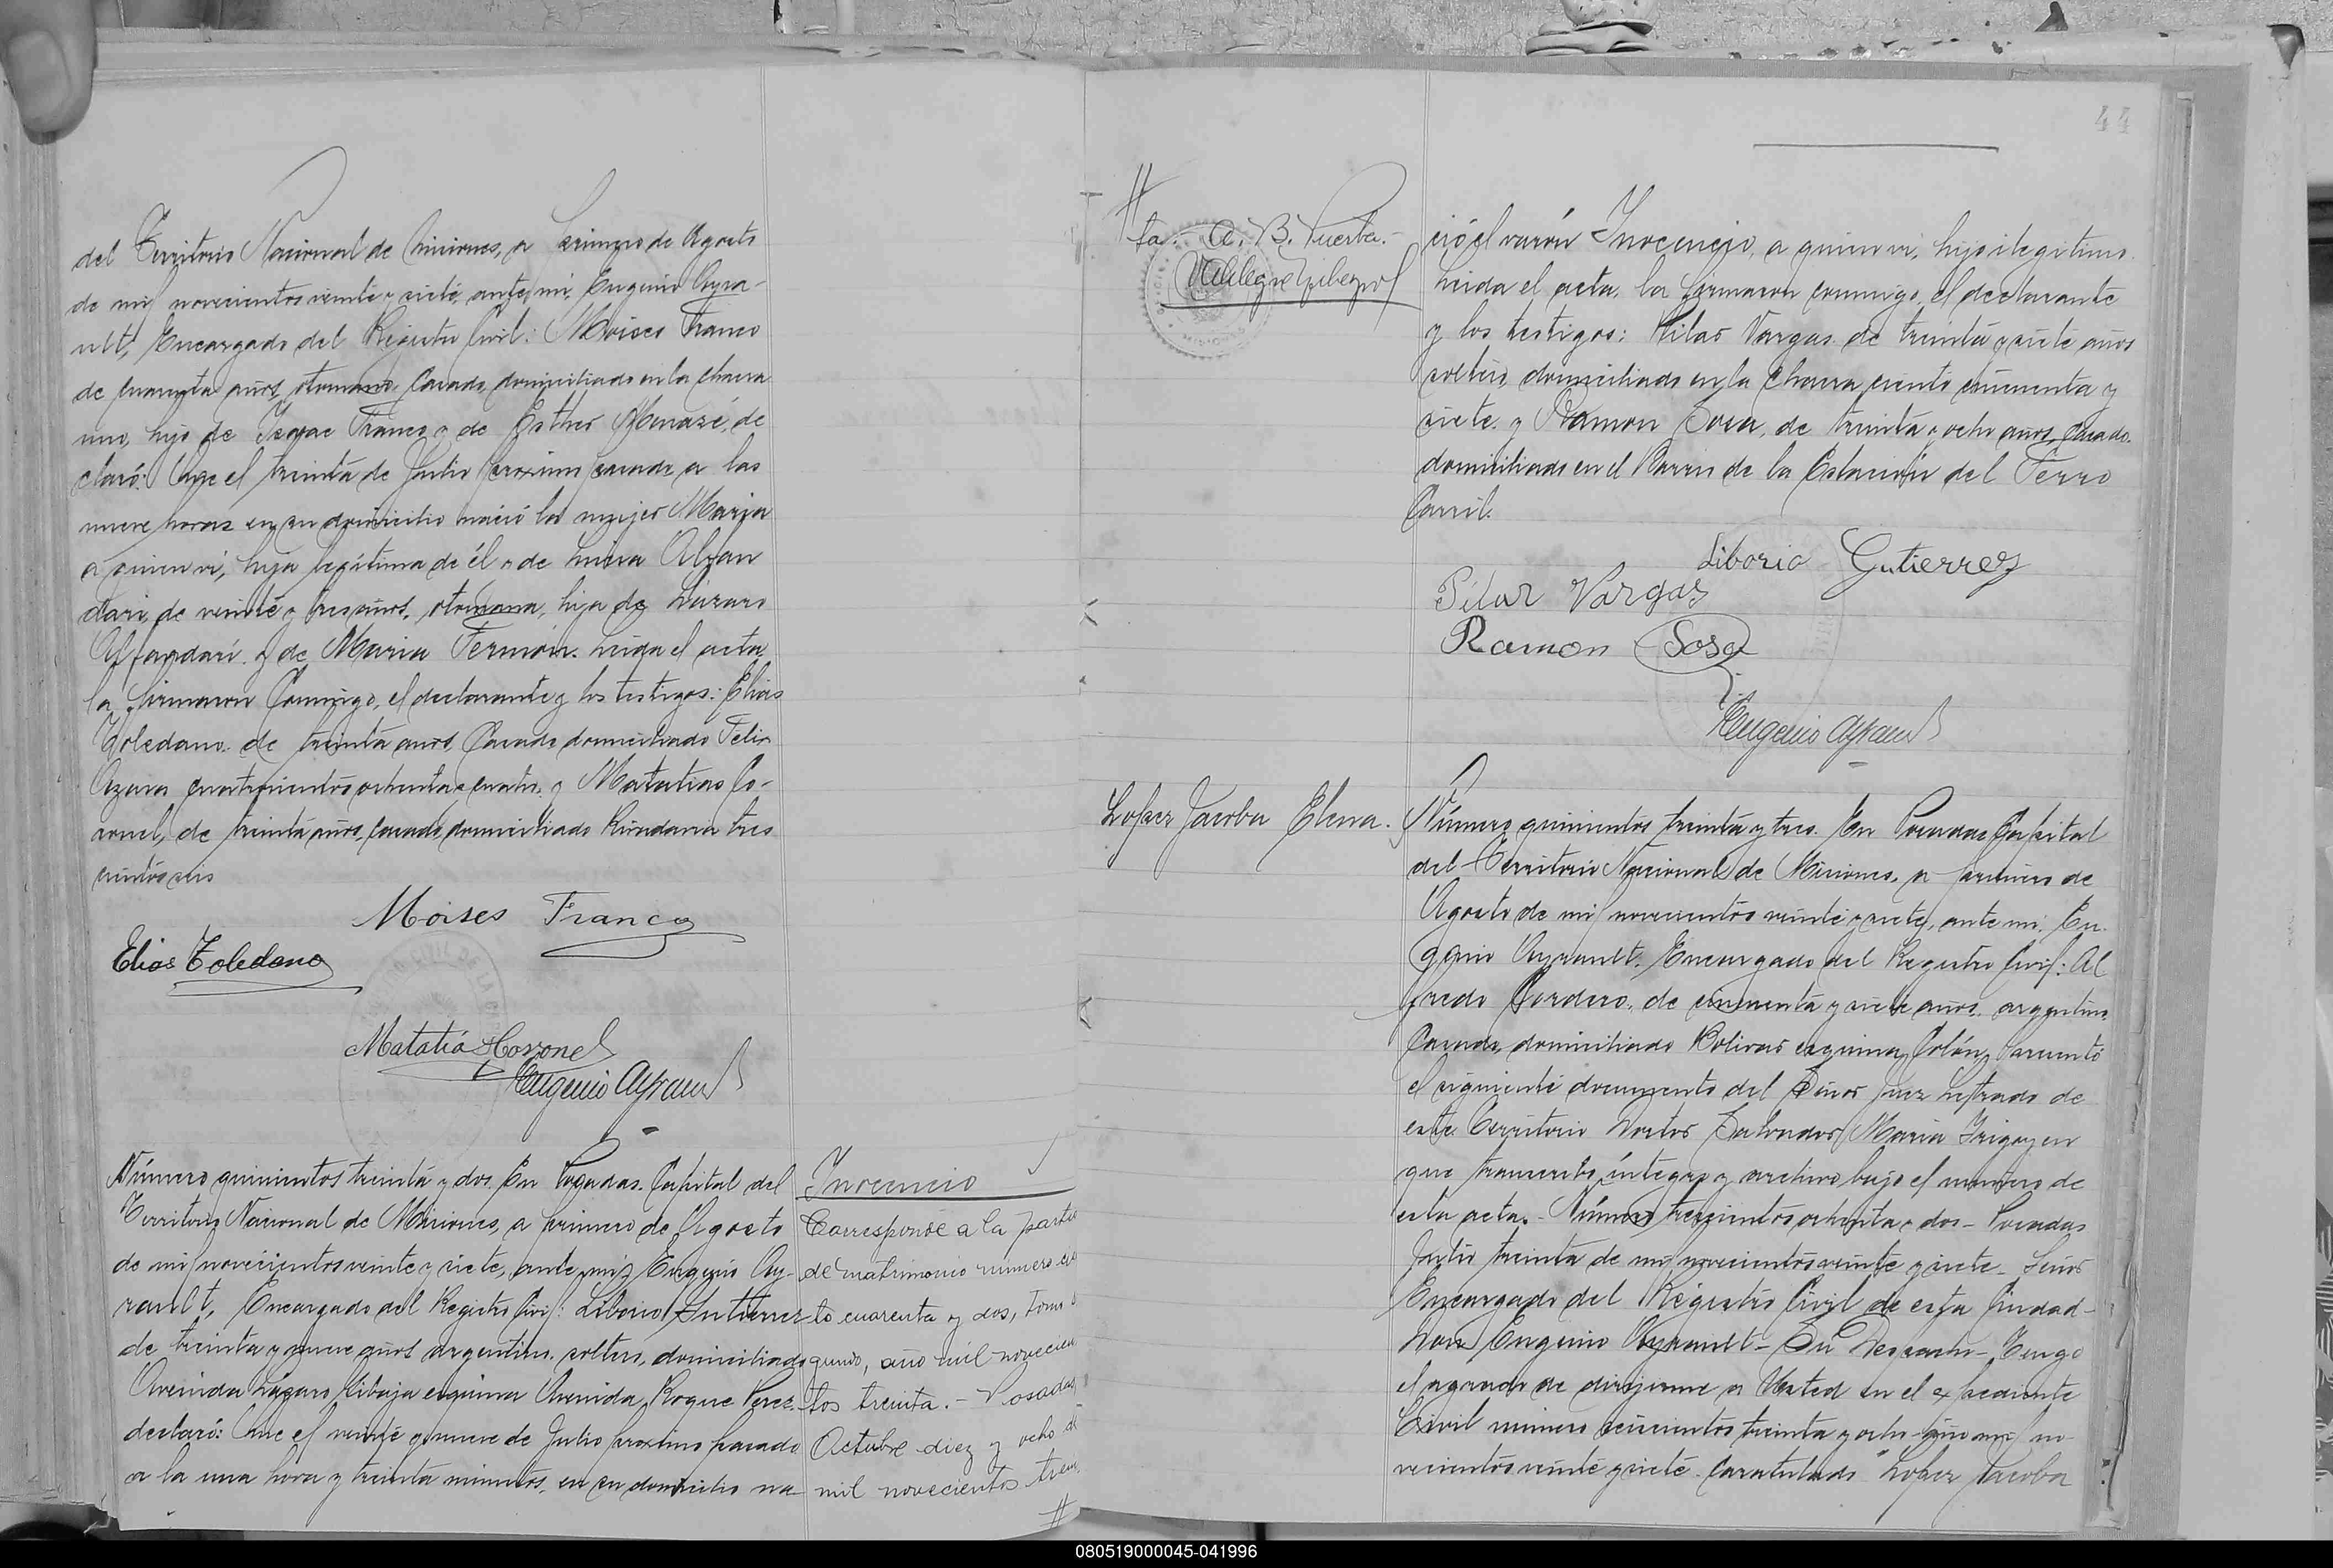 del Territorio Nacional de Misiones, a primero de Agosto
de mil novecientos veinte y siete, ante mi, Eugenio Ayra-
ult, Encargado del Registro Civil: Moises Franco
de cuarenta años, otomano, casado, domiciliado en la chacra
uno, hijo de Isaac Franco y de Esther Menasé, de
claró: Que el treinta de Julio proximo pasado a las
nueve horas en su domicilio nació la mujer Maria
a quien vi, hija legítima de él y de Luisa Alfan
dari, de veinte y tres años, otomana, hija de Lazaro
Alfandari y de Maria Fermon. Leida el acta
la firmaron Conmigo, el declarante y los testigos: Elias
Toledano de treinta años, Casado domiciliado Felix
Azara cuatrocientos ochenta y cuatro y Matatias Co-
ronel, de treinta años, casado, domiciliado Rivadavia tres
cientos seis
Moises Franco
Elias Toledano
Matatia Coronel
Eugenio Ayrault
Número quinientos treinta y dos. En Posadas, Capital del
Territorio Nacional de Misiones, a primero de Agosto
de mil novecientos veinte y siete, ante mi, Eugenio Ay-
rault, Encargado del Registro Civil: Liborio Gutierrez
de treinta y nueve años argentino, soltero, domiciliado
Avenida Lázaro Gibaja esquina Avenida Roque Perez.
declaró: Que el veinte y nueve de Julio proximo pasado
a la una hora y treinta minutos, en su domicilio na-
Inocencio
Corresponde a la parti
de matrimonio número cien
to cuarenta y dos, tomo se
gundo, año mil novecien
tos treinta.- Posadas
Octubre diez y ocho de
mil novecientos trein
#
44
#
ta. A. B. Puerta.-
ció el varón Inocencio, a quien vi, hijo ilegitimo.
Leida el acta, la firmaron conmigo, el declarante
y los testigos: Pilar Vargas de treinta y siete años
soltero, domiciliado en la Chacra ciento cincuenta y
siete y Ramon Sosa, de treinta y ocho años, Casado.
domiciliado en el Barrio de la Estación del Ferro
Carril.
Liborio Gutierrez
Pilar Vargas
Ramon Sosa
Eugenio Ayrault
Lopez Jacoba Elena.
Número quinientos treinta y tres. En Posadas Capital
del Territorio Nacional de Misiones, a primero de
Agosto de mil novecientos veinte y siete, ante mi, Eu-
genio Ayrault, Encargado del Registro Civil: Al
fredo Cordero, de cincuenta y siete años, argentino,
Casado, domiciliado Bolivar esquina Colón, presentó
el siguiente documento del Señor Juez Letrado de
este Territorio Doctor Salvador Maria Irigoyen
que transcribo íntegro y archivo bajo el número de
esta acta.- Número trescientos ochenta y dos - Posadas
Julio treinta de mil novecientos veinte y siete - Señor
Encargado del Registro Civil de esta Ciudad-
Don Eugenio Ayrault - Su Despacho - Tengo
el agrado de dirijirme a Usted en el expediente
Civil número seiscientos treinta y ocho - año mil no-
vecientos veinte y siete - Caratulado "Lopez Jacoba
080519000045-041996